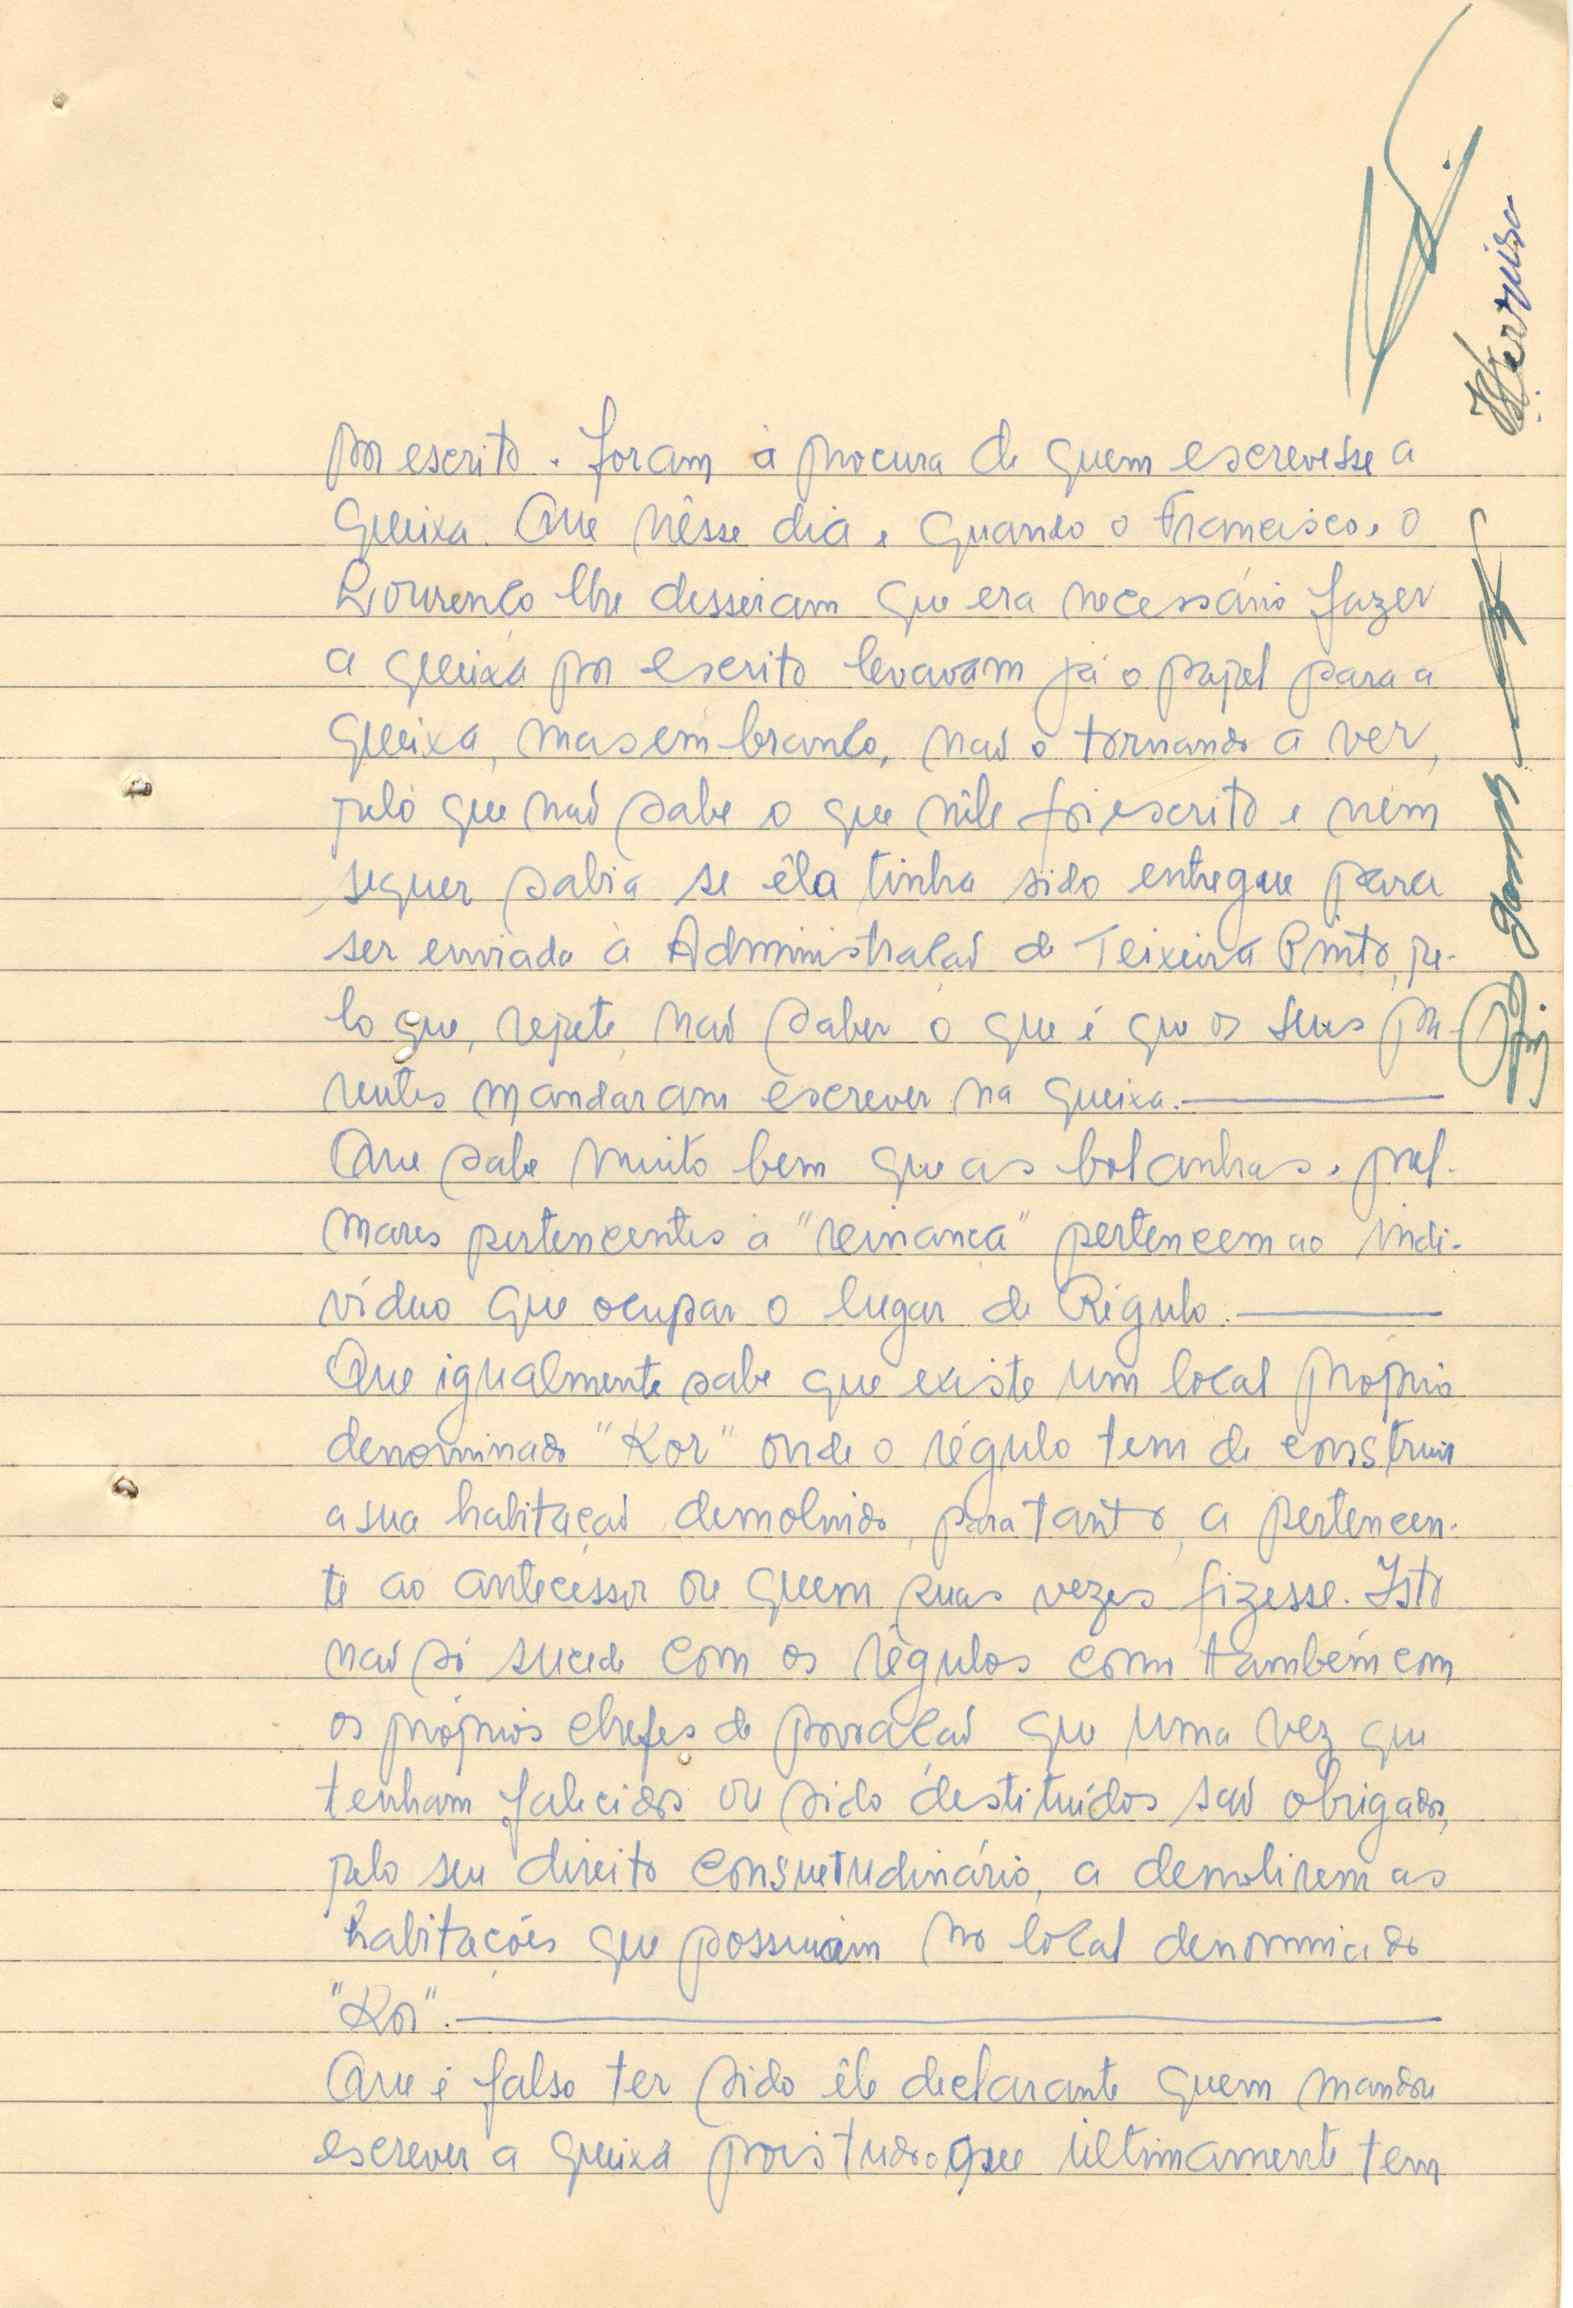 por escrito. foram à procura de quem escrevesse a
queixa. Que nêsse dia e quando o Francisco e o
Lourenço lhe disseram que era necessário fazer
a queixa por escrito levavam já o papel para a
queixa, mas em branco, não o tornando a ver,
pelo que não sabe o que nêle foi escrito e nem
sequer sabia se êla tinha sido entregue para
ser enviada à Administração de Teixeira Pinto, pe-
lo que, repete, não saber o que é que os seus pa-
rentes mandaram escrever na queixa.
Que sabe muito bem que as bolanhas e pal-
mares pertencentes à "reinança" pertencem ao indi-
víduo que ocupar o lugar de Régulo.
Que igualmente sabe que existe um local próprio
denominado "Kor" onde o régulo tem de construir
a sua habitação demolindo, para tanto, a pertencen-
te ao antecessor ou quem suas vezes fizesse. Isto
não só sucede com os régulos como também com
os próprios chefes de povoação que uma vez que
tenham falecidos ou sido destituídos são obrigados,
pelo seu direito consuetudinário, a demolirem as
habitações que possuiam no local denominado
"Kor".
Que é falso ter sido êle declarante quem mandou
escrever a queixa pois tudo que últimamente tem